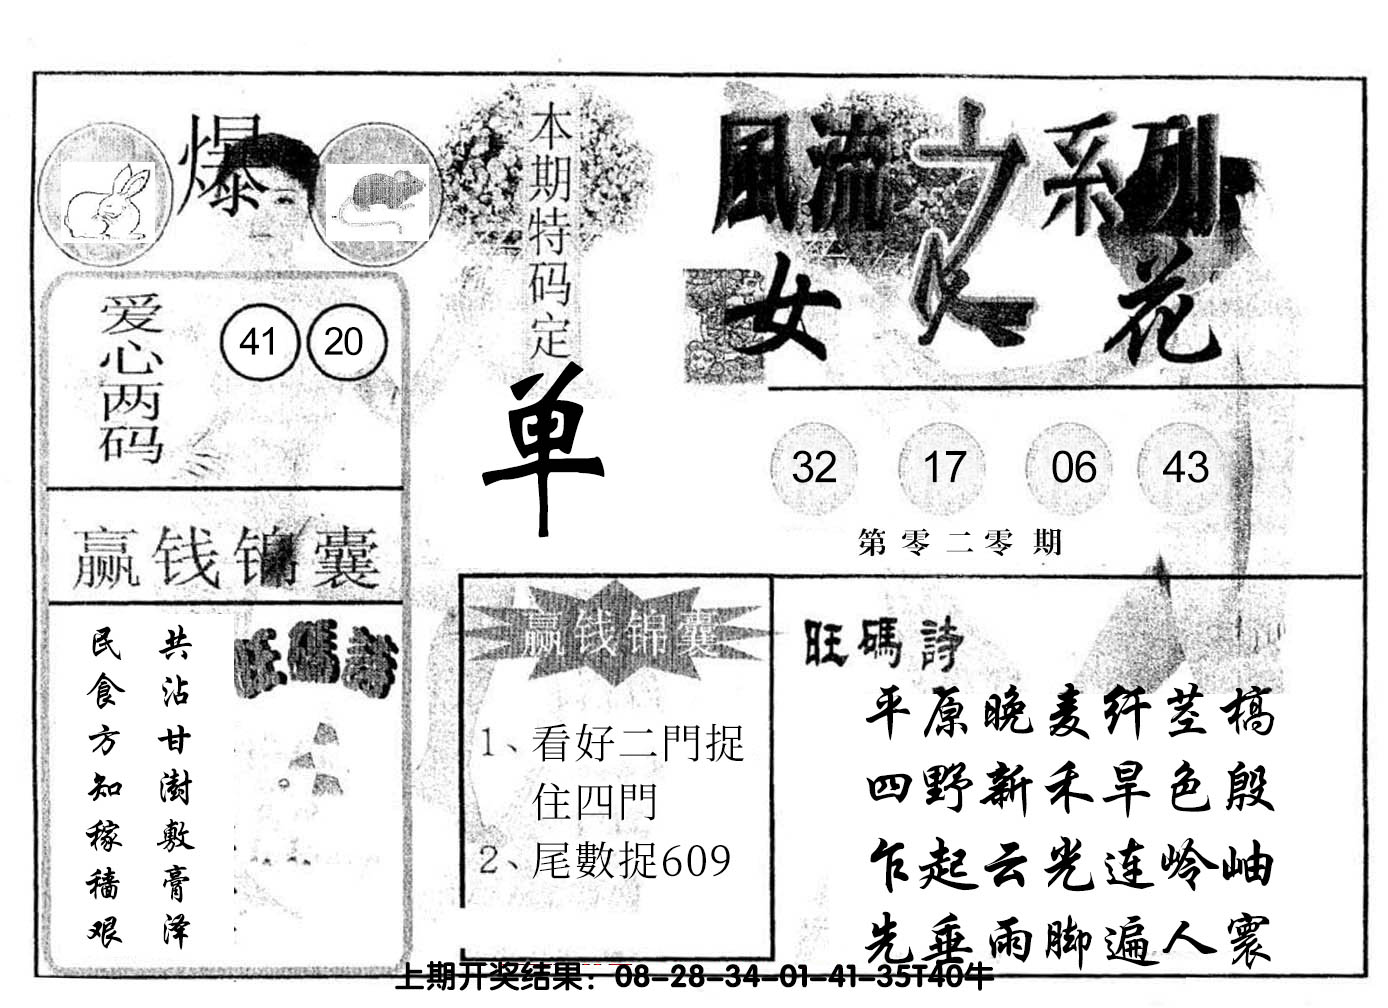 爆
本期特码定
单
風流之系列
女人花
爱心两码
41 20
32 17 06 43
第零二零期
赢钱锦囊
旺碼詩
共沾甘澍敷膏泽
民食方知稼穑艰
赢钱锦囊
1、看好二門捉
住四門
2、尾數捉609
旺碼詩
平原晚麦纤茎槁
四野新禾旱色殷
乍起云光连岭岫
先垂雨脚遍人寰
上期开奖结果：08-28-34-01-41-35T40牛